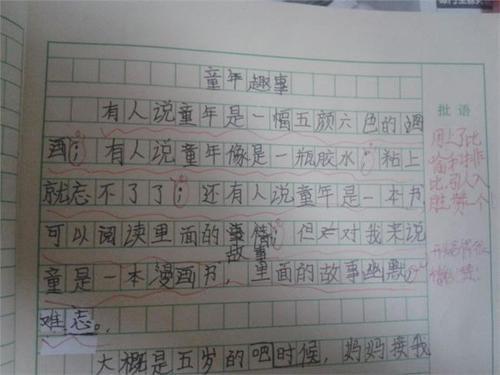 童年趣事
有人说童年是一幅五颜六色的
；有人说童年像是一瓶胶水；粘上
就忘不了了；还有人说童年是一本书
可以阅读里面的故事；但对我来说
童是一本漫画书，里面的故事幽默
难忘。
大概是五岁的吧时候，妈妈接我
批语
用上了比
喻手法排
比，引人入
胜，赞一个